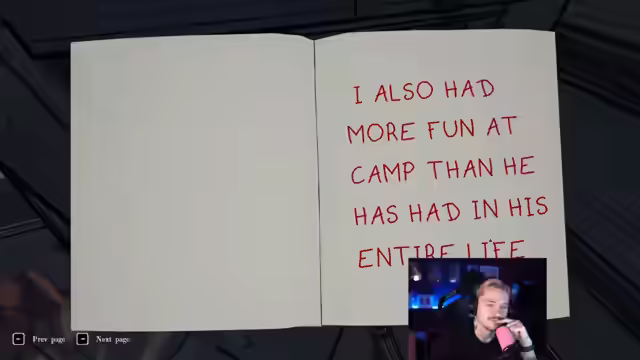 I ALSO HAD
MORE FUN AT
CAMP THAN HE
HAS HAD IN HIS
ENTIRE LIFE
Prev page
Next page